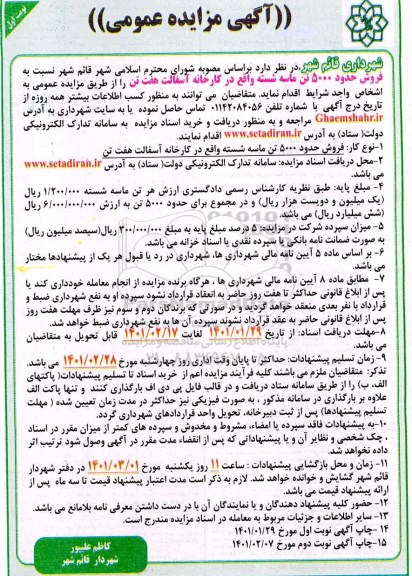 نوبت اول
((آگهی مزایده عمومی))
شهرداری قائم شهر در نظر دارد براساس مصوبه شورای محترم اسلامی شهر قائم شهر نسبت به
فروش حدود ۵۰۰۰ تن ماسه شسته واقع در کارخانه آسفالت هفت تن را از طریق مزایده عمومی به
اشخاص واجد شرایط اقدام نماید. متقاضیان می توانند به منظور کسب اطلاعات بیشتر همه روزه از
تاریخ درج آگهی با شماره تلفن ۰۱۱۴۲۰۸۴۰۵۶ تماس حاصل نموده یا به سایت شهرداری به آدرس
Ghaemshahr.ir مراجعه و به منظور دریافت و خرید اسناد مزایده به سامانه تدارک الکترونیکی
دولت( ستاد) به آدرس www.setadiran.ir اقدام نمایند.
۱-نوع کار: فروش حدود ۵۰۰۰ تن ماسه شسته واقع در کارخانه آسفالت هفت تن
۲-محل دریافت اسناد مزایده: سامانه تدارک الکترونیکی دولت( ستاد) به آدرس www.setadiran.ir
۴- مبلغ پایه: طبق نظریه کارشناس رسمی دادگستری ارزش هر تن ماسه شسته ۱/۲۰۰/۰۰۰ ریال
(یک میلیون و دویست هزار ریال) و در مجموع برای حدود ۵۰۰۰ تن به ارزش ۶/۰۰۰/۰۰۰/۰۰۰ ریال
(شش میلیارد ریال) می باشد.
۵- میزان سپرده شرکت در مزایده: ۵ درصد مبلغ پایه به مبلغ ۳۰۰/۰۰۰/۰۰۰ ریال(سیصد میلیون ریال)
به صورت ضمانت نامه بانکی یا سپرده نقدی یا اسناد خزانه می باشد.
۶- بر اساس ماده ۵ آیین نامه مالی شهرداری ها، شهرداری در رد یا قبول هر یک از پیشنهادها مختار
می باشد.
۷- مطابق ماده ۸ آیین نامه مالی شهرداری ها ، هرگاه برنده مزایده از انجام معامله خودداری کند یا
پس از ابلاغ قانونی حداکثر تا هفت روز حاضر به انعقاد قرارداد نشود سپرده او به نفع شهرداری ضبط و
قرارداد با نفر بعدی منعقد خواهد گردید و در صورتی که برندگان دوم و سوم نیز ظرف مهلت هفت روز
پس از ابلاغ قانونی حاضر به عقد قرارداد نشوند سپرده آن ها به نفع شهرداری ضبط خواهد شد.
۸-مهلت دریافت اسناد: از تاریخ ۱۴۰۱/۰۱/۲۹ لغایت ۱۴۰۱/۰۲/۱۷ قابل تحویل به متقاضیان
می باشد.
۹- زمان تسلیم پیشنهادات: حداکثر تا پایان وقت اداری روز چهارشنبه مورخ ۱۴۰۱/۰۲/۲۸ می باشد.
تذکر: متقاضیان ملزم می باشند کلیه فرآیند مزایده اعم از خرید اسناد تا تسلیم پیشنهادات( پاکتهای
الف، ب) را از طریق سامانه ستاد دریافت و در قالب فایل پی دی اف بارگذاری کنند و تنها پاکت الف
علاوه بر بارگذاری در سامانه مذکور ، به صورت فیزیکی نیز حداکثر در مدت زمان تعیین شده ( مهلت
تسلیم پیشنهادها) پس از ثبت دبیرخانه، تحویل واحد قراردادهای شهرداری گردد.
۱۰-به پیشنهادات فاقد سپرده یا امضاء، مشروط و مخدوش و سپرده های کمتر از میزان مقرر در اسناد
، چک شخصی و نظایر آن و یا پیشنهاداتی که پس از انقضاء مدت مقرر در آگهی وصول شود ترتیب اثر
داده نخواهد شد.
۱۱- زمان و محل بازگشایی پیشنهادات : ساعت ۱۱ روز یکشنبه مورخ ۱۴۰۱/۰۳/۰۱ در دفتر شهردار
قائم شهر گشایش و خوانده خواهد شد. لازم به ذکر است مدت اعتبار پیشنهاد قیمت تا سه ماه پس از
ارائه پیشنهاد قیمت می باشد.
۱۲- حضور کلیه پیشنهاد دهندگان و یا نمایندگان آن با در دست داشتن معرفی نامه بلامانع می باشد.
۱۳- سایر اطلاعات و جزئیات مربوط به معامله در اسناد مزایده مندرج است.
۱۴- چاپ آگهی نوبت اول مورخ ۱۴۰۱/۰۱/۲۹
۱۵-چاپ آگهی نوبت دوم مورخ ۱۴۰۱/۰۲/۰۷
کاظم علیپور
شهردار قائم شهر